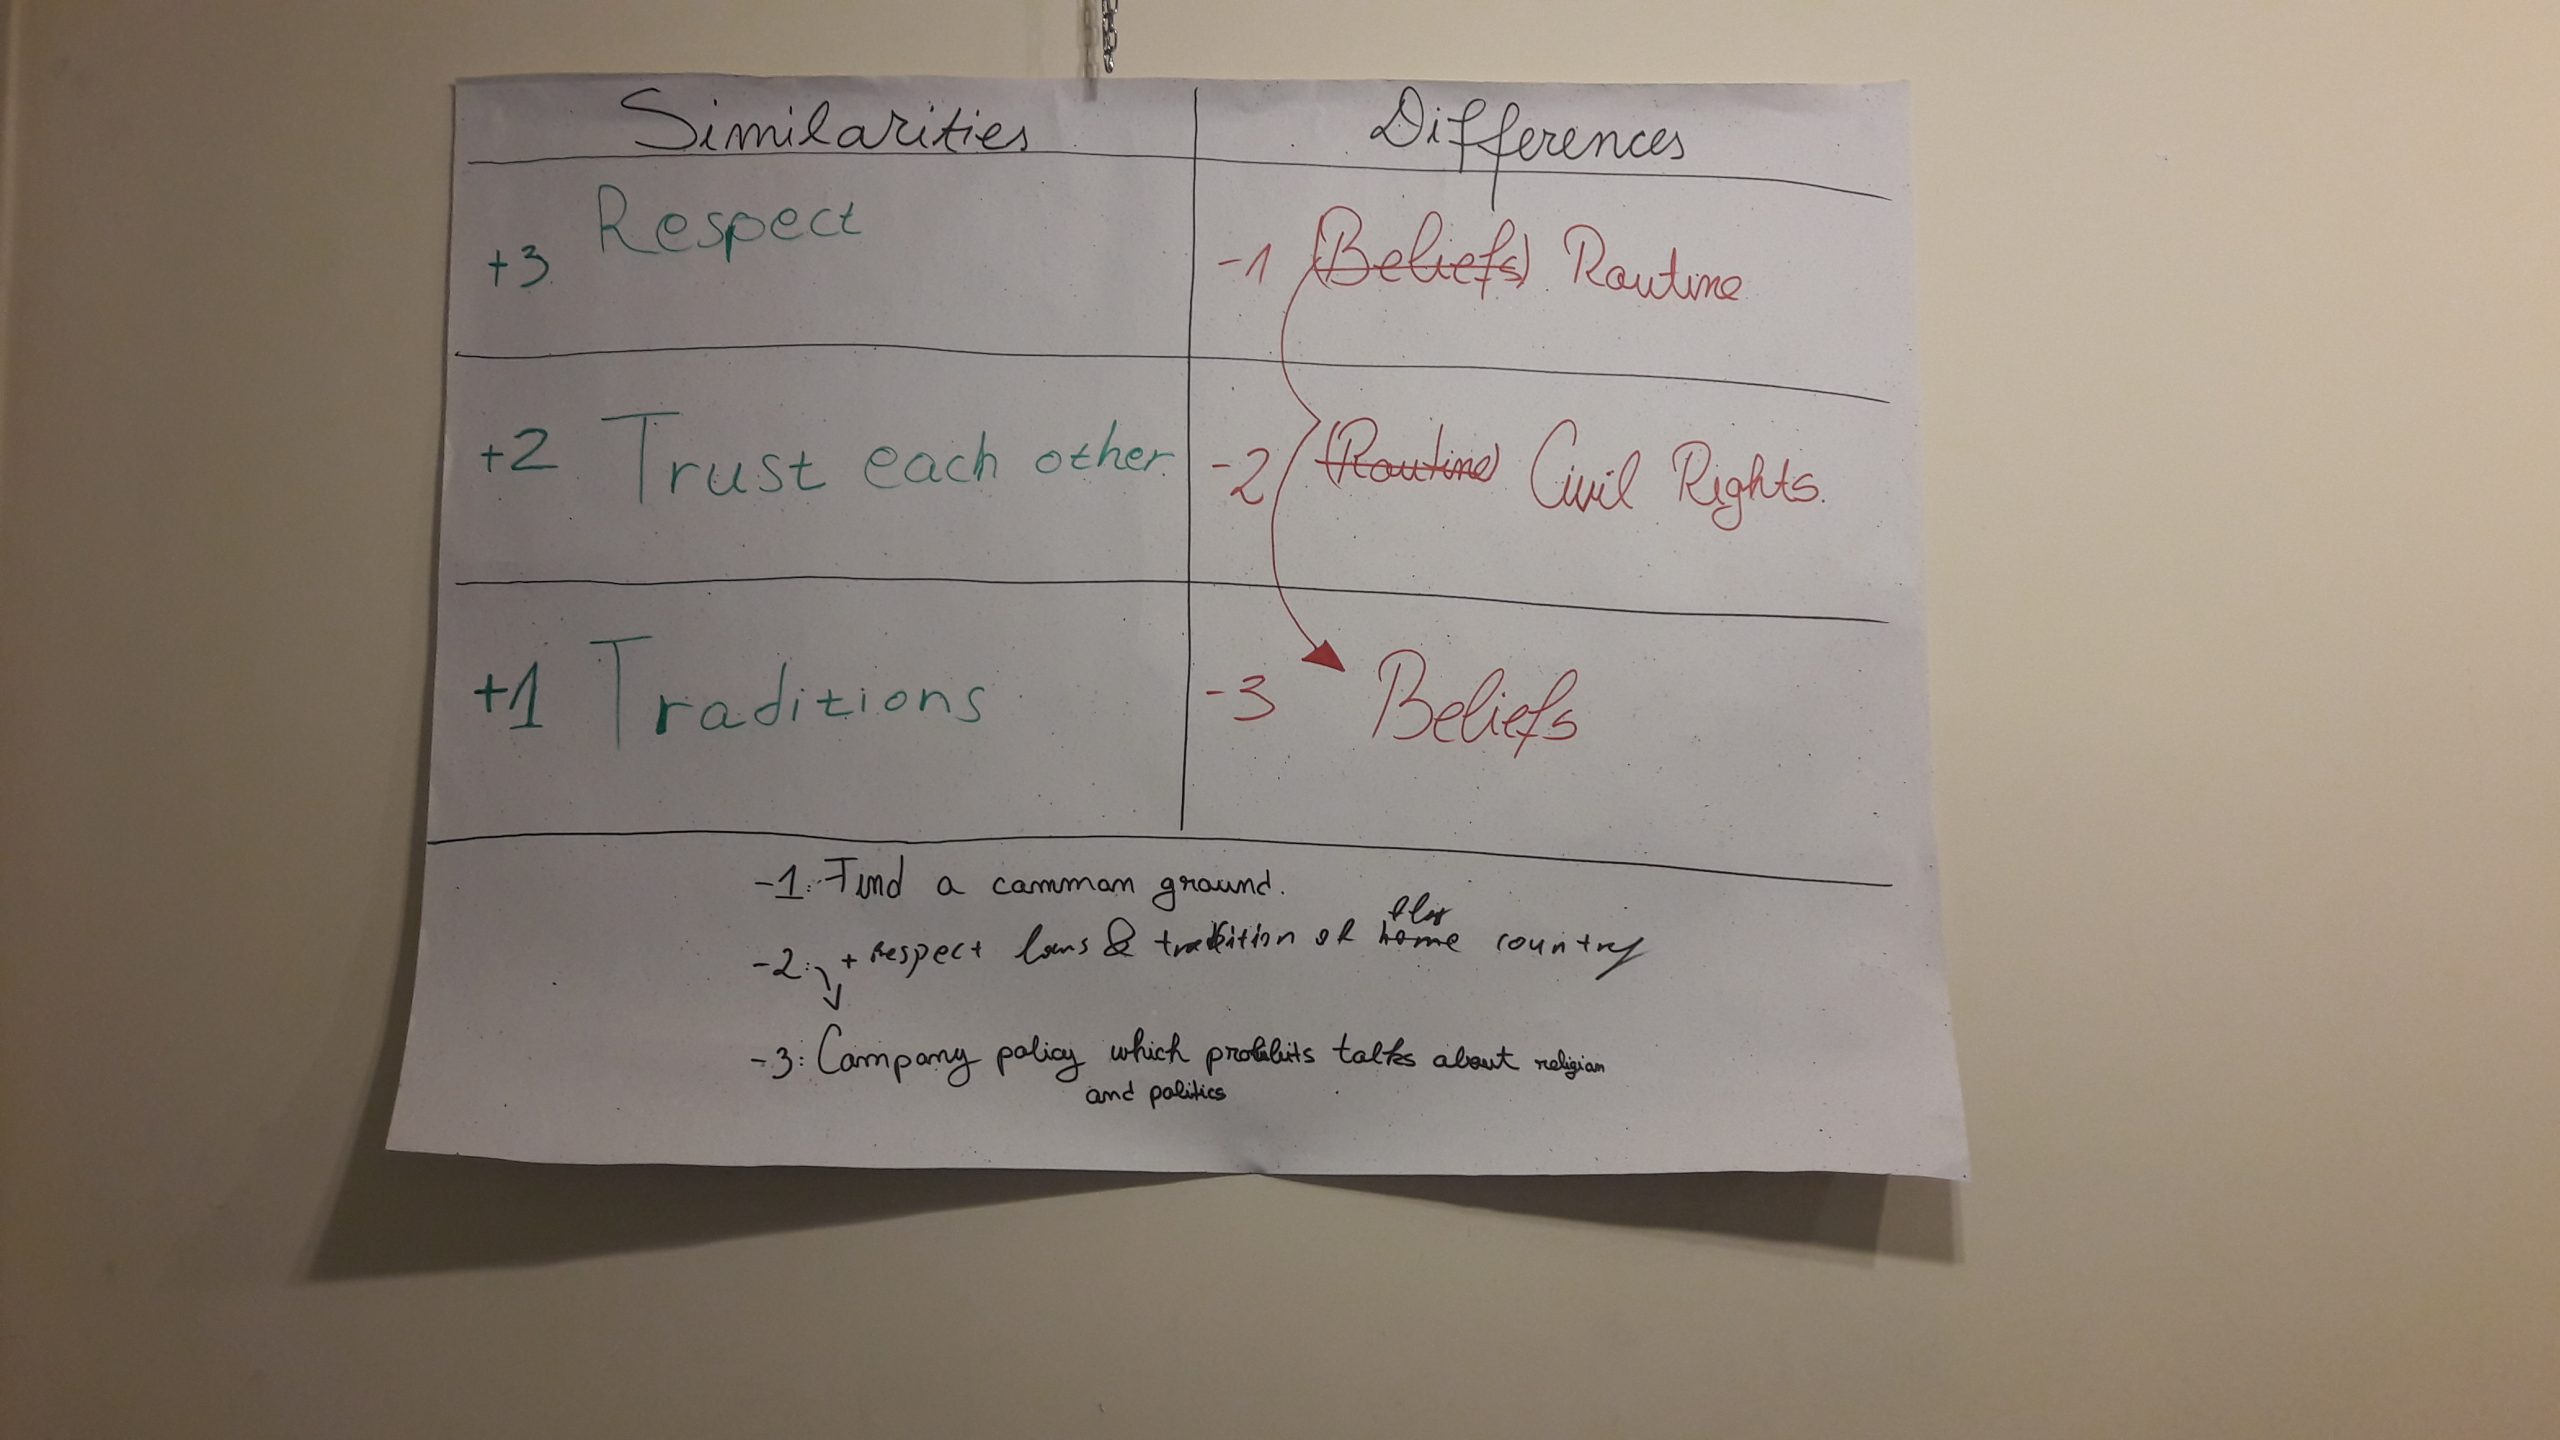 Similarities
Differences
+3 Respect
-1 (Beliefs) Routine
+2 Trust each other
-2 (Routine) Civil Rights.
+1 Traditions
-3 Beliefs
-1: Find a common ground.
-2: + respect laws & tradition of home country
-3: Company policy which prohibits talks about religion
and politics